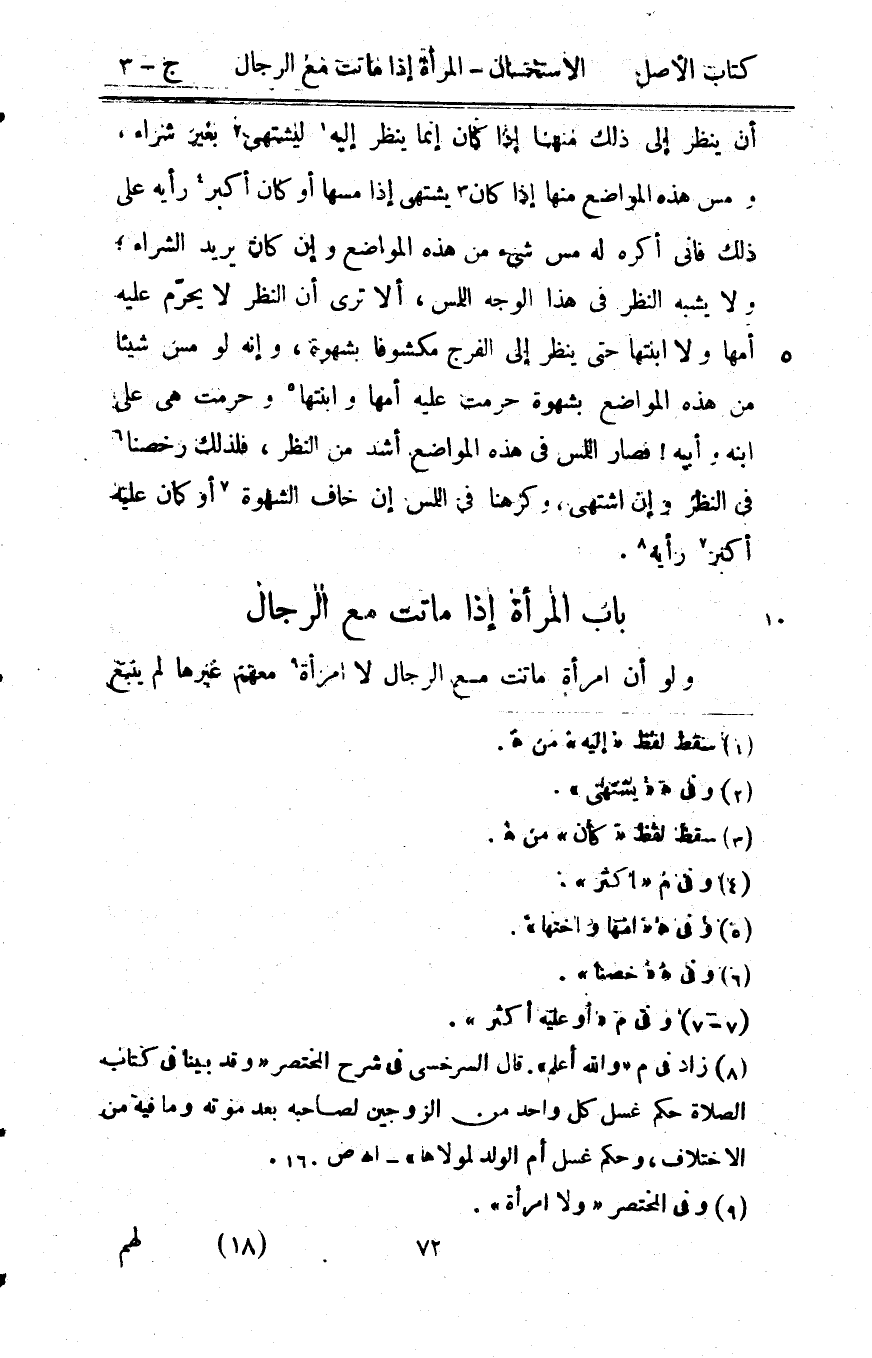 كتاب الأصل الاستحسان - المرأة إذا ماتت مع الرجال ج - ٣
أن ينظر إلى ذلك منها إذا كان إنما ينظر إليه١ ليشتهى٢ بغير شراء ،
و مس هذه المواضع منها إذا كان٣ يشتهى إذا مسها أو كان أكبر٤ رأيه على
ذلك فانى أكره له مس شىء من هذه المواضع و إن كان يريد الشراء ؛
و لا يشبه النظر فى هذا الوجه اللس ، ألا ترى أن النظر لا يحرّم عليه
٥ أمها و لا ابنتها حتى ينظر إلى الفرج مكشوفا بشهوة ، و إنه لو مس شيئا
من هذه المواضع بشهوة حرمت عليه أمها و ابنتها٥ و حرمت هى على
ابنه و أبيه ! فصار اللس فى هذه المواضع أشد من النظر ، فلذلك رخصنا٦
فى النظر و إن اشتهى ، و كرهنا فى اللس إن خاف الشهوة ٧ أو كان عليه
أكبر٧ رأيه٨ .
١٠ باب المرأة إذا ماتت مع الرجال
و لو أن امرأة ماتت مع الرجال لا امرأة٩ معهم غيرها لم ينبغ
(١) سقط لفظ « إليه » من ه .
(٢) و فى ه « يشتهى » .
(٣) سقط لفظ « كان » من ه .
(٤) و فى م « اكثر » .
(٥) و فى ه « امها و اختها » .
(٦) و فى ه « خصنا » .
(٧-٧) و فى م « أو عليه أكثر » .
(٨) زاد فى م « والله أعلم » . قال السرخسى فى شرح المختصر « و قد بينا فى كتاب
الصلاة حكم غسل كل واحد من الزوجين لصاحبه بعد موته و ما فيه من
الاختلاف ، و حكم غسل أم الولد لمولاها » - اه ص ١٦٠ .
(٩) و فى المختصر « و لا امرأة » .
٧٢ (١٨) لهم